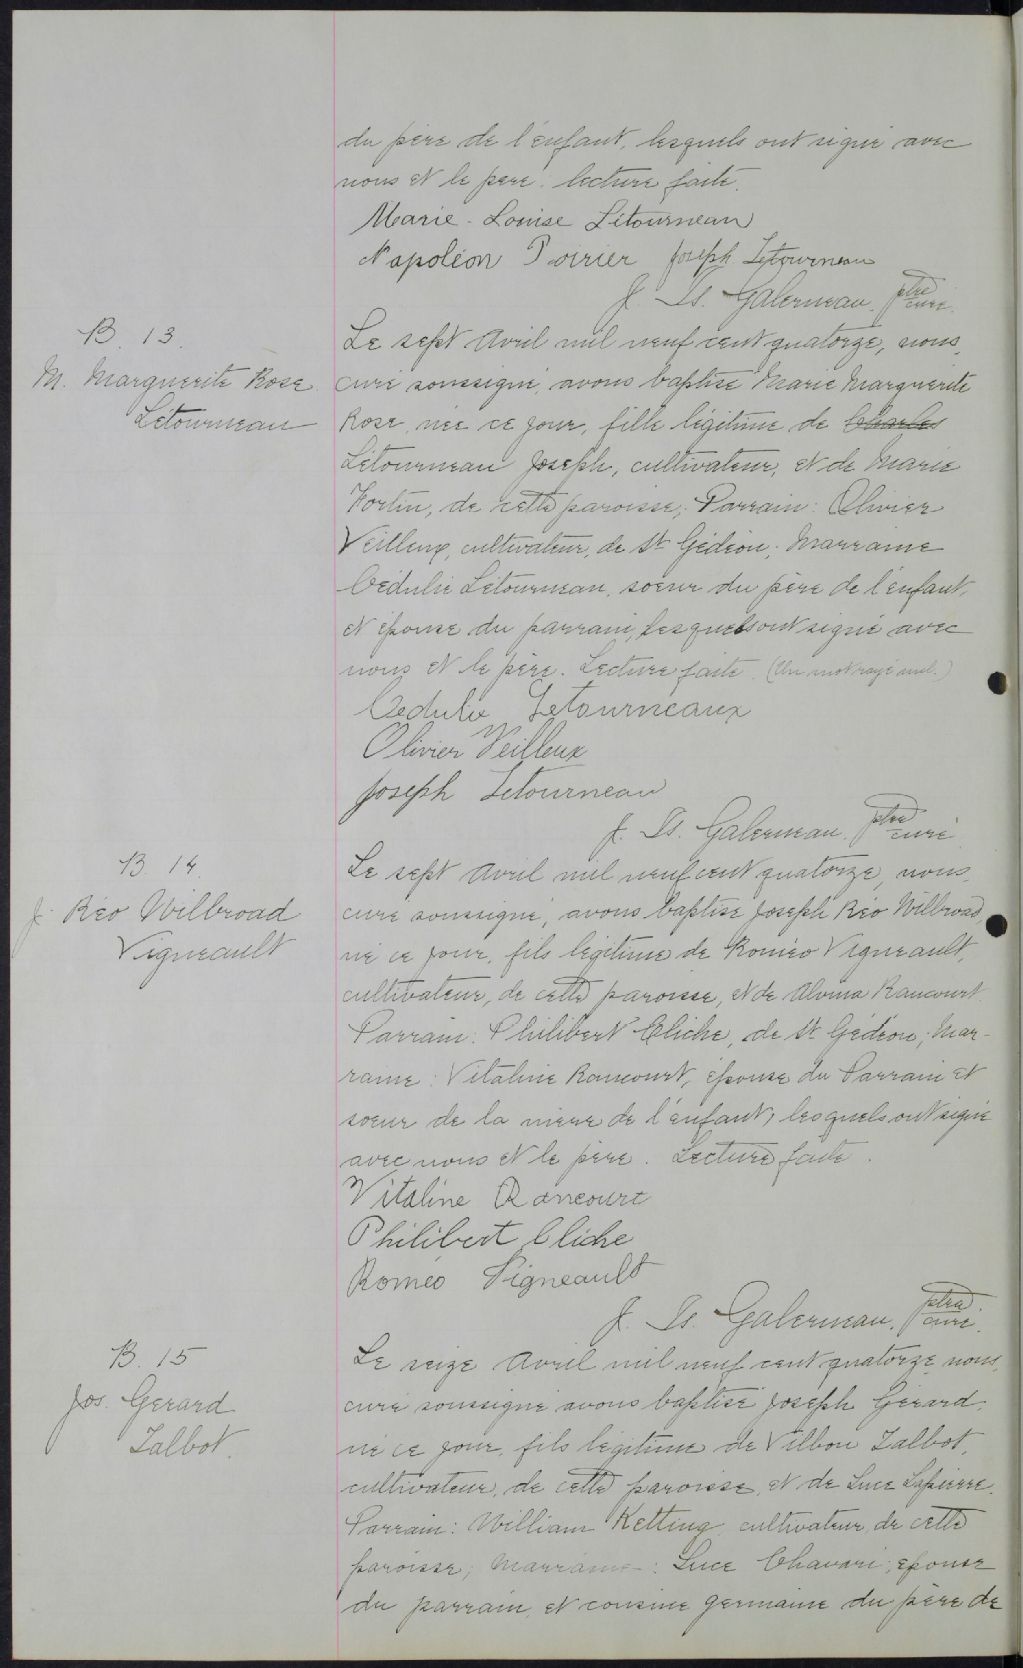 du père de l'enfant, lesquels ont signé avec
nous et le père. lecture faite.
Marie-Louise Létourneau
Napoléon Poirier Joseph Letourneau
J. Ls. Galerneau, ptre curé.
B. 13.
M. Marguerite Rose
Létourneau
Le sept Avril mil neuf cent quatorze, nous,
curé soussigné, avons baptisé Marie Marguerite
Rose, née ce jour, fille légitime de Charles
Létourneau Joseph, cultivateur, et de Marie
Fortin, de cette paroisse; Parrain: Olivier
Veilleux, cultivateur, de St Gédéon; Marraine
Cédulie Létourneau, soeur du père de l'enfant,
et épouse du parrain, lesquels ont signé avec
nous et le père. Lecture faite. (Un mot rayé nul.)
Cedulie Letourneaux
Olivier Veilleux
Joseph Letourneau
J. Ls. Galerneau, ptre curé
B. 14.
J. Réo Wilbroad
Vigneault
Le sept Avril mil neuf cent quatorze, nous,
curé soussigné, avons baptisé Joseph Réo Wilbroad,
né ce jour, fils légitime de Roméo Vigneault,
cultivateur, de cette paroisse, et de Alvina Rancourt.
Parrain: Philibert Cliche, de St Gédéon; Mar-
raine: Vitaline Rancourt, épouse du Parrain et
soeur de la mère de l'enfant, lesquels ont signé
avec nous et le père. Lecture faite.
Vitaline Rancourt
Philibert Cliche
Roméo Vigneault
J. Ls. Galerneau, ptre curé.
B. 15
Jos. Gerard
Talbot.
Le seize Avril mil neuf cent quatorze nous,
curé soussigné avons baptisé Joseph Gérard,
né ce jour, fils légitime de Vilbon Talbot,
cultivateur, de cette paroisse, et de Luce Lapierre.
Parrain: William Ketting cultivateur de cette
paroisse; Marraine: Luce Chavari, épouse
du parrain, et cousine germaine du père de